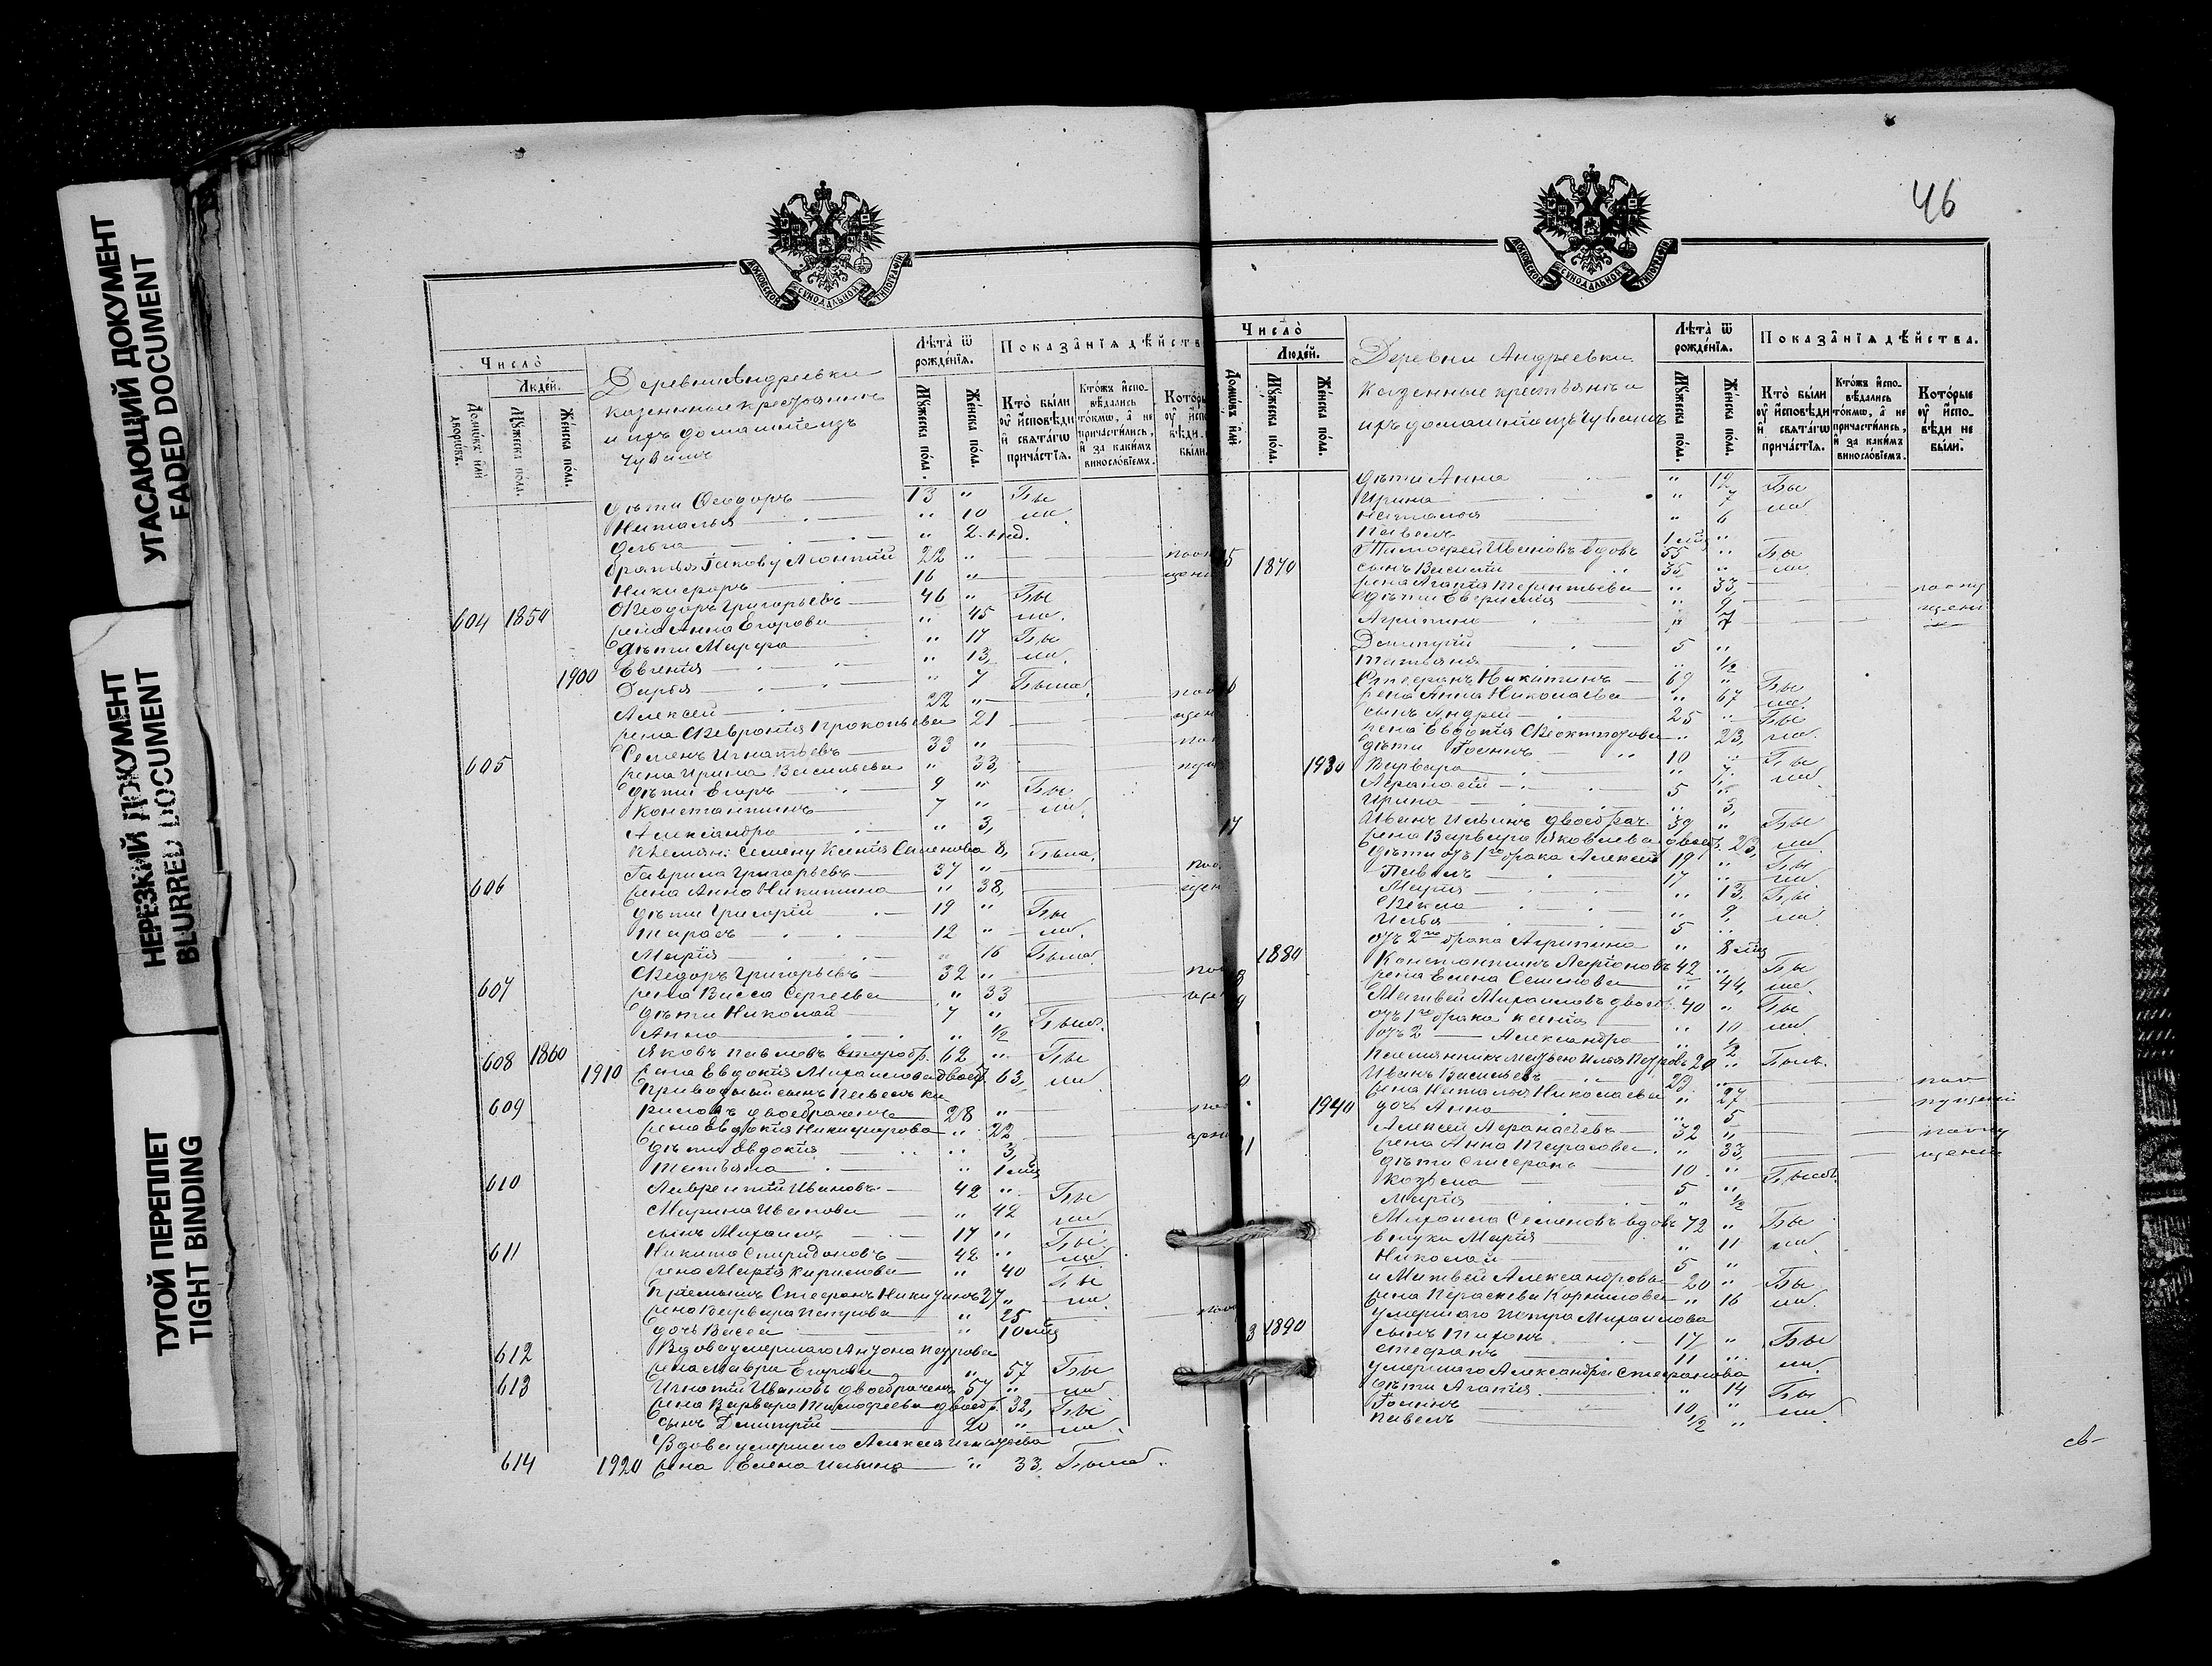 УГАСАЮЩИЙ ДОКУМЕНТ
FADED DOCUMENT
НЕРЕЗКИЙ ДОКУМЕНТ
BLURRED DOCUMENT
ТУГОЙ ПЕРЕПЛЕТ
TIGHT BINDING
МОСКОВСКОЙ СѴНОДАЛЬНОЙ ТИПОГРАФІИ
Число̀
Людей.
Домѡвъ или дворѡвъ.
Мꙋжеска пола.
Женска пола.
Деревни Андреевки
казенные крестьяне
и ихъ домашніе изъ
чувашъ
Лѣта ѿ рожденїѧ.
Мꙋжеска пола.
Женска пола.
Показанїѧ дѣйств
Кто были оу исповѣди и свѧтагѡ причастїѧ.
Ктожъ исповѣдались токмѡ, а не причастились, и за какимъ винословїемъ.
дѣти Ѳеодоръ 13 " Бы
Наталья " 10 ли
Ольга " 2 нед.
братья Іакову Леонтій 22 "
Никифоръ 16 "
604 1850 Ѳеодоръ Григорьевъ 46 " Бы
жена Анна Егорова " 45 ли.
дѣти Марфа " 17 Бы
Евгенія " 13 ли.
1900 Дарья " 7 Была
Алексей 22 "
жена Ѳевронія Прокопьева 21
605 Семенъ Игнатьевъ 33 "
жена Ирина Васильева " 33
дѣти Егоръ 9 " Бы
Константинъ 7 " ли.
Александра " 3
Племян: Семену Ксенія Семенова 8 Была
606 Гаврила Григорьевъ 37 "
жена Анна Никитина " 38
дѣти Григорій 19 " Бы
Тарасъ 12 " ли.
Марія " 16 Была
607 Ѳедоръ Григорьевъ 32 "
жена Васса Сергеева " 33
дѣти Николай 7 "
Анна " 1/2
608 1860 Яковъ Павловъ второбр. 62 " Бы
1910 жена Евдокія Михаилова двоебр. 63 ли
609 Приводный сынъ Павелъ Ки
риловъ двоебраченъ 28 "
жена Евдокія Никифорова " 22
дѣти Евдокія " 3
Татьяна " 1 мѣс
610 Лаврентій Ивановъ 42 " Бы
Марина Иванова " 42 ли
сынъ Михаилъ 17 " Бы
611 Никита Спиридоновъ 42 " ли
жена Марія Кирилова " 40 Бы
Пріемышъ Стефанъ Никитинъ 27 " ли.
жена Варвара Петрова " 25
дочь Васса " 10 мѣс
612 Вдова умершаго Антона Петрова
жена Мавра Егорова " 57 Бы
613 Игнатій Ивановъ двоебраченъ 57 " ли
жена Варвара Тимофеева двоебр. 32 Бы
сынъ Димитрій 20 " ли.
Вдова умершаго Алексея Игнатьева
614 1920 жена Елена Ильина " 33 Была
46
МОСКОВСКОЙ СѴНОДАЛЬНОЙ ТИПОГРАФІИ
Число̀
Людей.
Домѡвъ или
Мꙋжеска пола.
Женска пола.
Деревни Андреевки
Казенные крестьяне и
ихъ домашніе изъ чувашъ
Лѣта ѿ рожденїѧ.
Мꙋжеска пола.
Женска пола.
Показанїѧ дѣйства.
Кто были оу исповѣди и свѧтагѡ причастїѧ.
Ктожъ исповѣдались токмѡ, а не причастились, и за какимъ винословїемъ.
Которые оу исповѣди не были.
дѣти Анна " 12 Бы
Ирина " 7 ли
Наталья " 6
Павелъ 1 мѣс "
15 1870 Тимофей Ивановъ вдовъ 55 " Бы
сынъ Василій 35 " ли
жена Агапія Терентьева " 33
дѣти Евфимія " 9
Агрипина " 7
Димитрій 5 "
Татьяна " 1/2
16 Стефанъ Никитинъ 69 " Бы
жена Анна Николаева " 67 ли
сынъ Андрей 25 " Бы
жена Евдокія Ѳеоктистова " 23 ли.
дѣти Іоаннъ 10 " Бы
1930 Варвара " 7 ли
Афанасій 5 "
Ирина " 3
17 Иванъ Ильинъ двоебрач. 39 " Бы
жена Варвара Яковлева двоебр. 23 ли
дѣти отъ 1го брака Алексей 19 " Бы
Павелъ 17 " ли
Марія " 13 Бы
Ѳекла " 9 ли
Илья 5 "
отъ 2го брака Агрипина " 8 мѣс
1880 Константинъ Ларіоновъ 42 " Бы
жена Елена Семенова " 44 ли
9 Матвей Михаиловъ двоебр. 40 " Бы
отъ 1го брака Ксенія " 10 ли
отъ 2 — Александра " 1/2
Племянникъ Матвею Илья Петровъ 20 " Былъ.
Иванъ Васильевъ 29 "
жена Наталья Николаева " 27
1940 дочь Анна " 5
21 Алексей Афанасьевъ 32 "
жена Анна Тарасова " 33
дѣти Стефанъ 10 "
Козьма 5 "
Марія " 1/2
Михаилъ Семеновъ вдовъ 72 " Бы
внуки Марія " 11 ли
Николай 5 "
и Матвей Александровъ 20 " Бы
жена Параскева Корнилова " 16 ли
умершаго Петра Михаилова
3 1890 сынъ Тихонъ 17 " Бы
Стефанъ 11 " ли.
умершаго Александра Стефанова
дѣти Агапія " 14 Бы
Іоаннъ 10 " ли.
Павелъ 1/2 "
св-